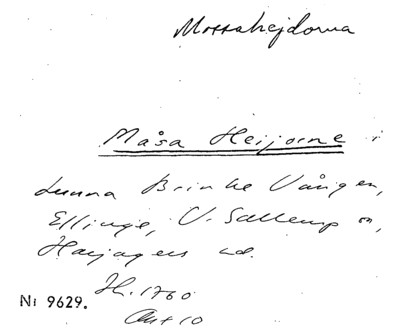 Mossahejdorna
Måsa Heijorne i
Lunna Brinke Vången,
Ellinge, V. Sallerup sn,
Harjagers hd.
H. 1760
Akt 10
Ni 9629.